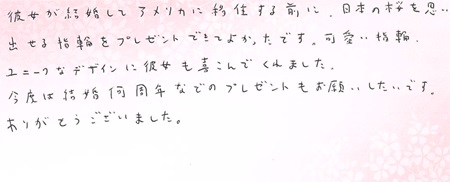 彼女が結婚してアメリカに移住する前に、日本の桜を思い
出せる指輪をプレゼントできてよかったです。可愛い指輪、
ユニークなデザインに彼女も喜こんでくれました。
今度は結婚何周年などのプレゼントもお願いしたいです。
ありがとうございました。